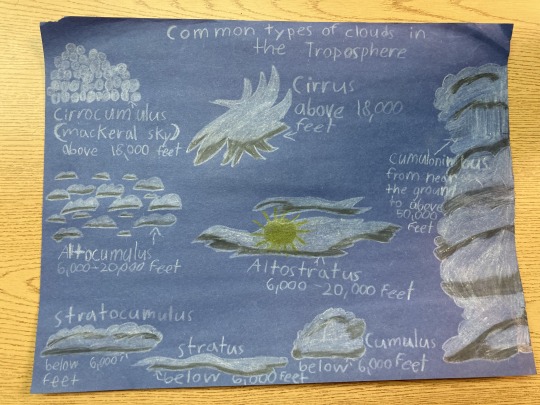 Common types of clouds in
the Troposphere
Cirrocumulus
(mackeral sky)
above 18,000 feet
Cirrus
above 18,000
feet
cumulonimbus
from near
the ground
to above
50,000
feet
Altocumulus
6,000-20,000 feet
Altostratus
6,000-20,000 feet
stratocumulus
below 6,000
feet
stratus
below 6,000 feet
Cumulus
below 6,000 feet